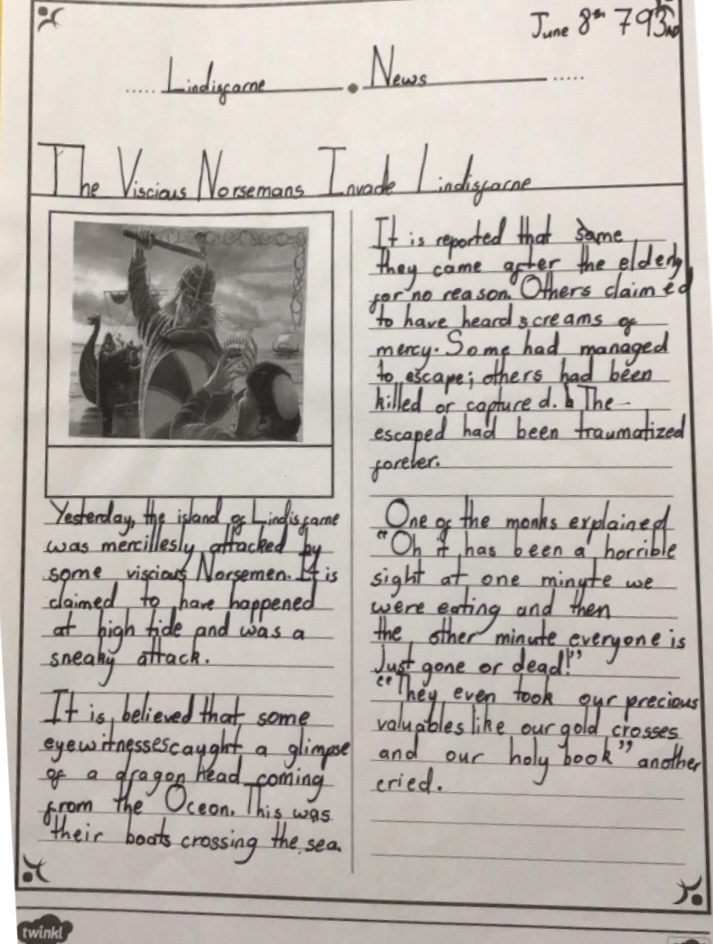 June 8th 793ND
..... Lindisfarne . News .....
The Viscious Norsemans Invade Lindisfarne
Yesterday, the island of Lindisfarne
was mercillesly attacked by
some viscious Norsemen. It is
claimed to have happened
at high tide and was a
sneaky attack.
It is believed that some
eyewitnesses caught a glimpse
of a dragon head coming
from the Oceon. This was
their boats crossing the sea.
It is reported that some
they came after the elderly
for no reason. Others claimed
to have heard screams of
mercy. Some had managed
to escape; others had been
killed or captured. The
escaped had been traumatized
forever.
One of the monks explained
"Oh it has been a horrible
sight at one minute we
were eating and then
the other minute everyone is
Just gone or dead!"
"They even took our precious
valuables like our gold crosses
and our holy book" another
cried.
twinkl